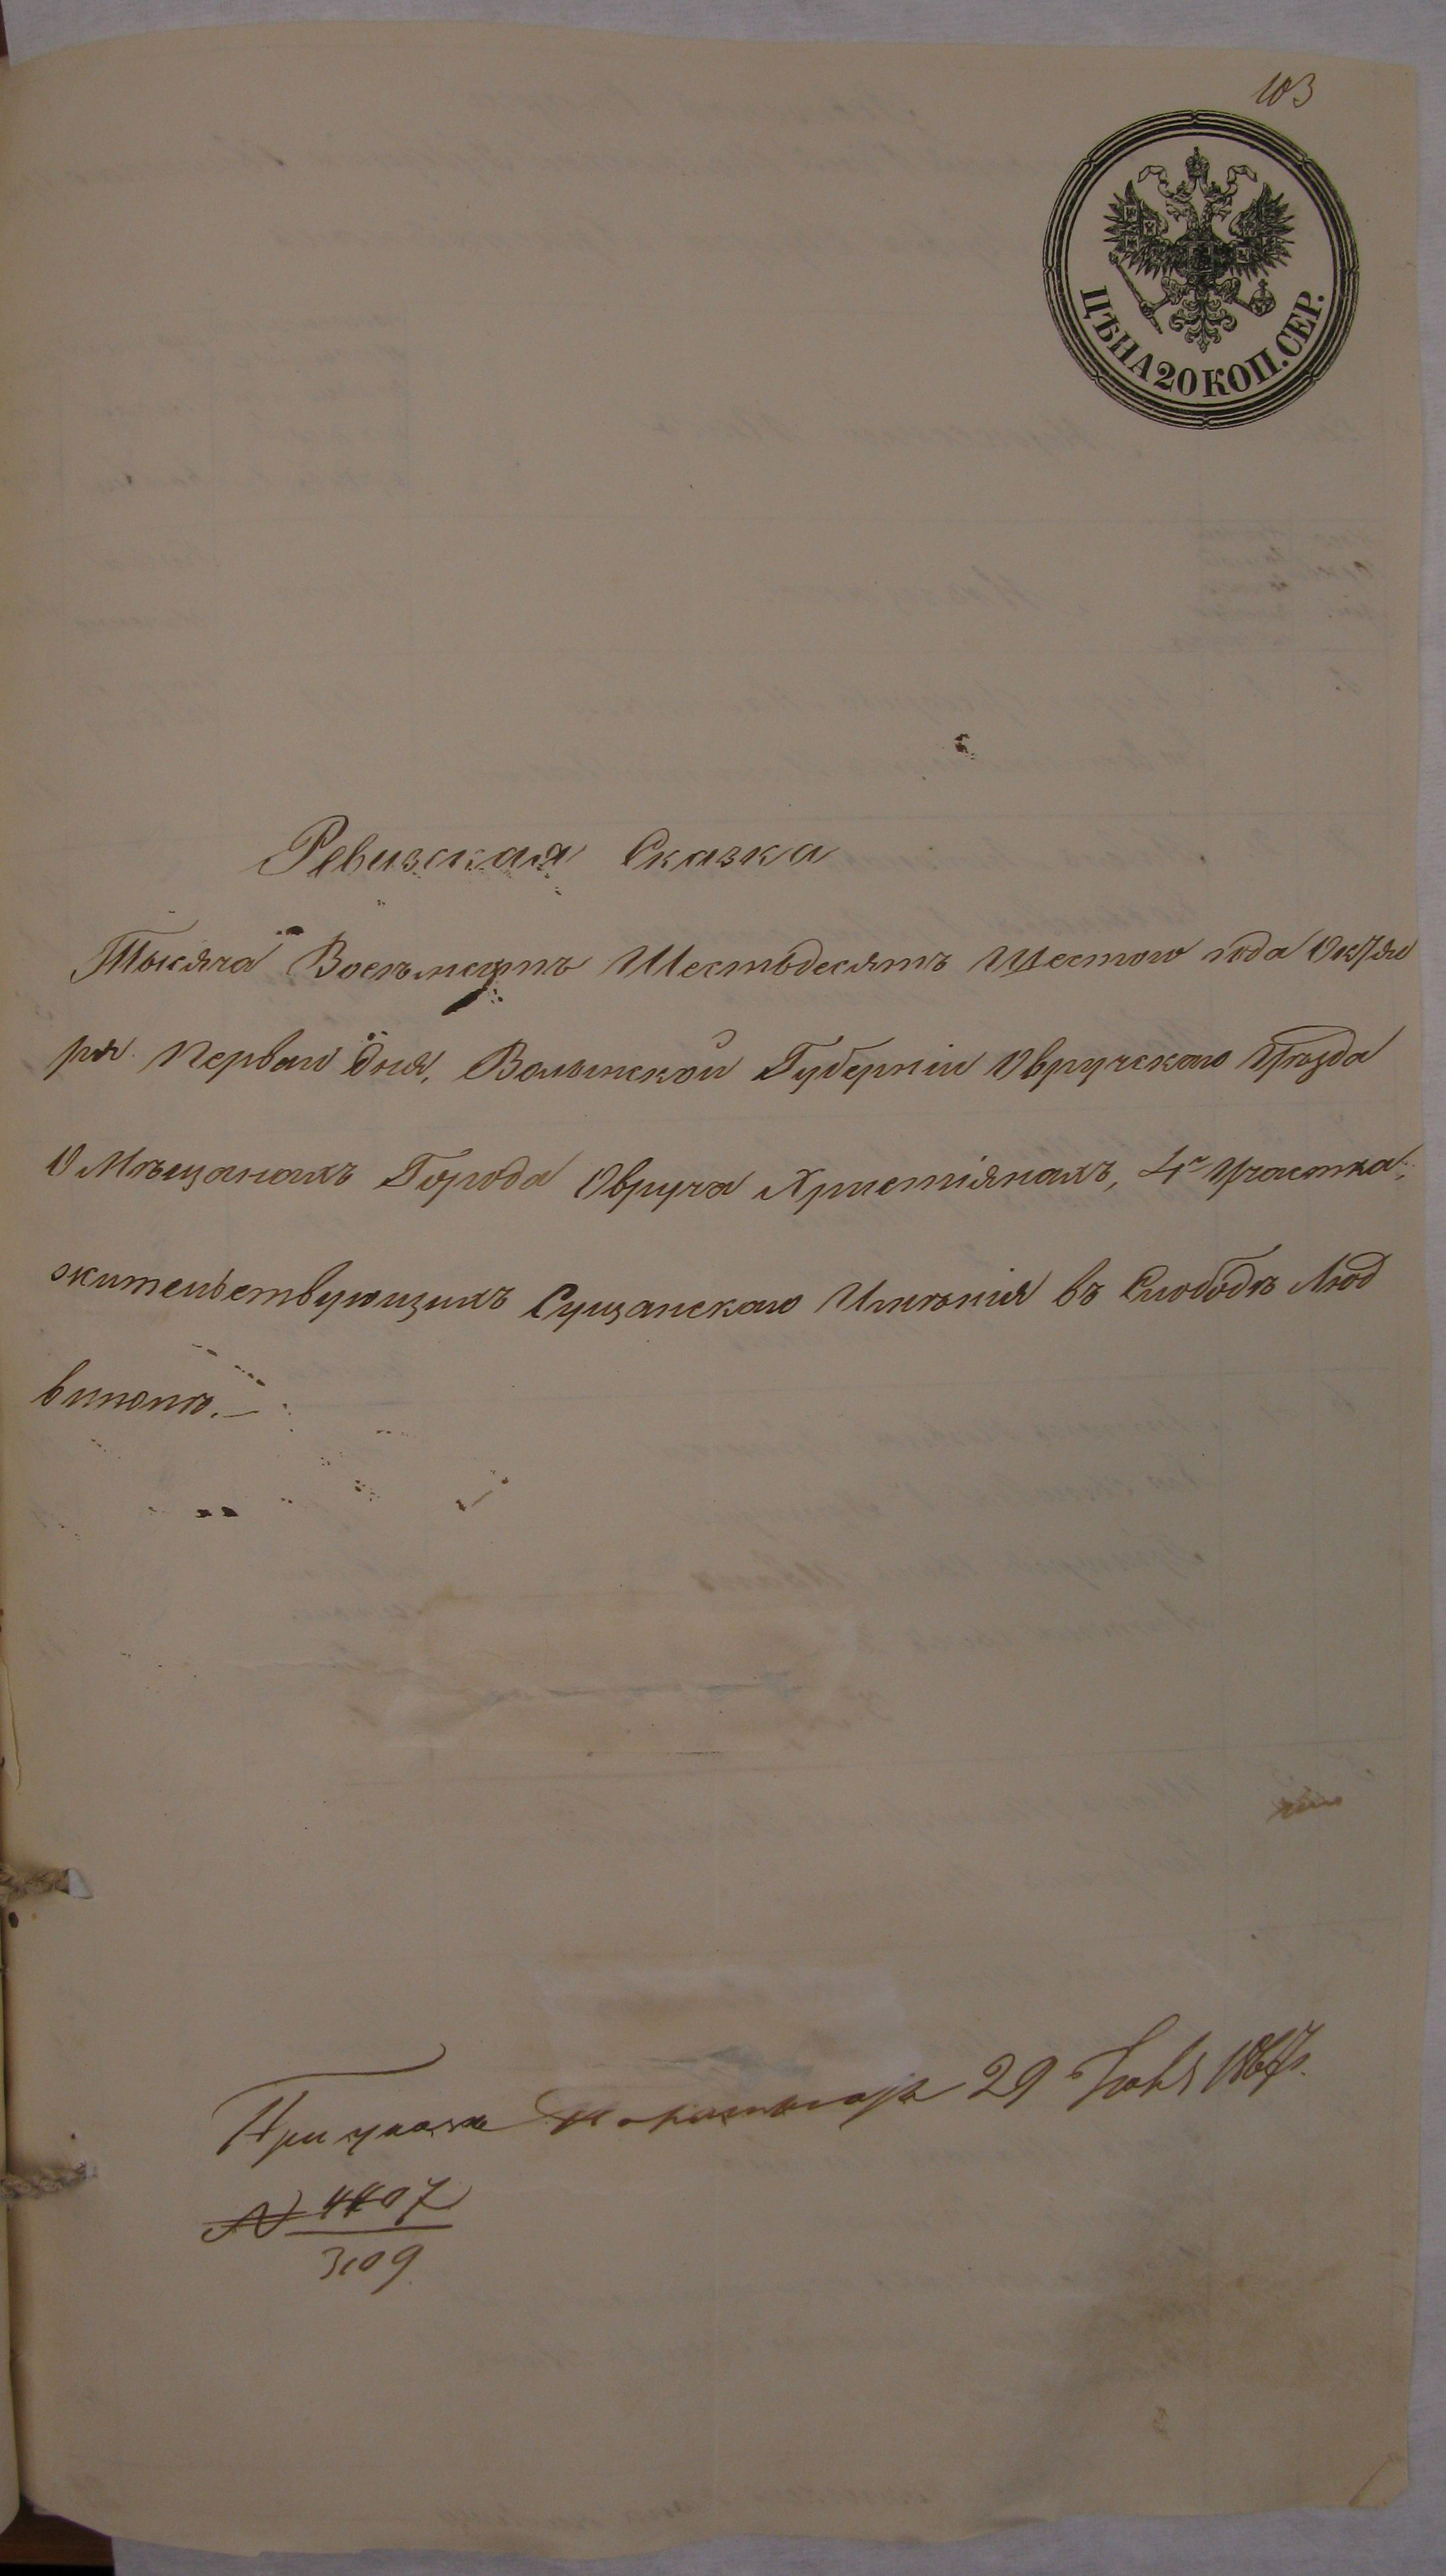 103
ЦѢНА 20 КОП. СЕР.
Ревизская Сказка
Тысяча Восемьсотъ Шестьдесятъ Шестого года Октяб
ря Перваго дня, Волынской Губерніи Овручскаго Уѣзда
О Мѣщанахъ Города Овруча Христіянахъ, 4го Участка,
жительствующихъ Сущанскаго Имѣнія въ Слободѣ Люд
винопѣ.
При указѣ 29 1867г.
№ 4407
3109